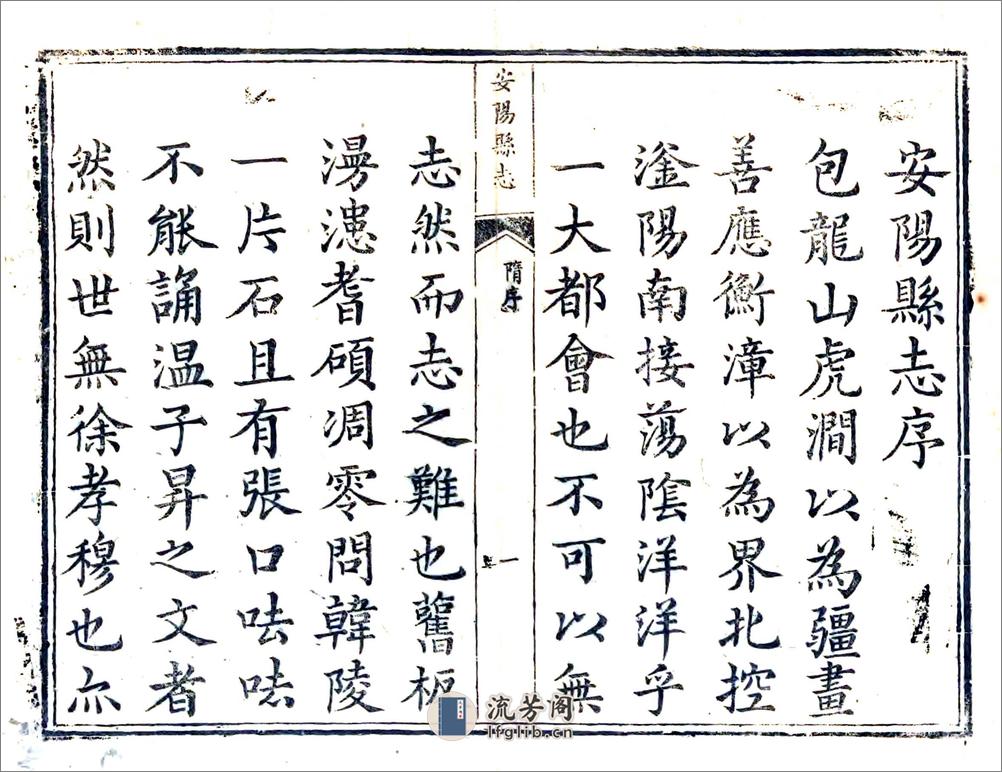 安陽縣志序
包龍山虎澗以為疆畫
善應衡漳以為界北控
滏陽南接蕩陰洋洋乎
一大都會也不可以無
安陽縣志
隋序
一
志然而志之難也舊板
漫漶耆碩凋零問韓陵
一片石且有張口呿呿
不能誦温子昇之文者
然則世無徐孝穆也尒
流芳阁
lfglib.cn